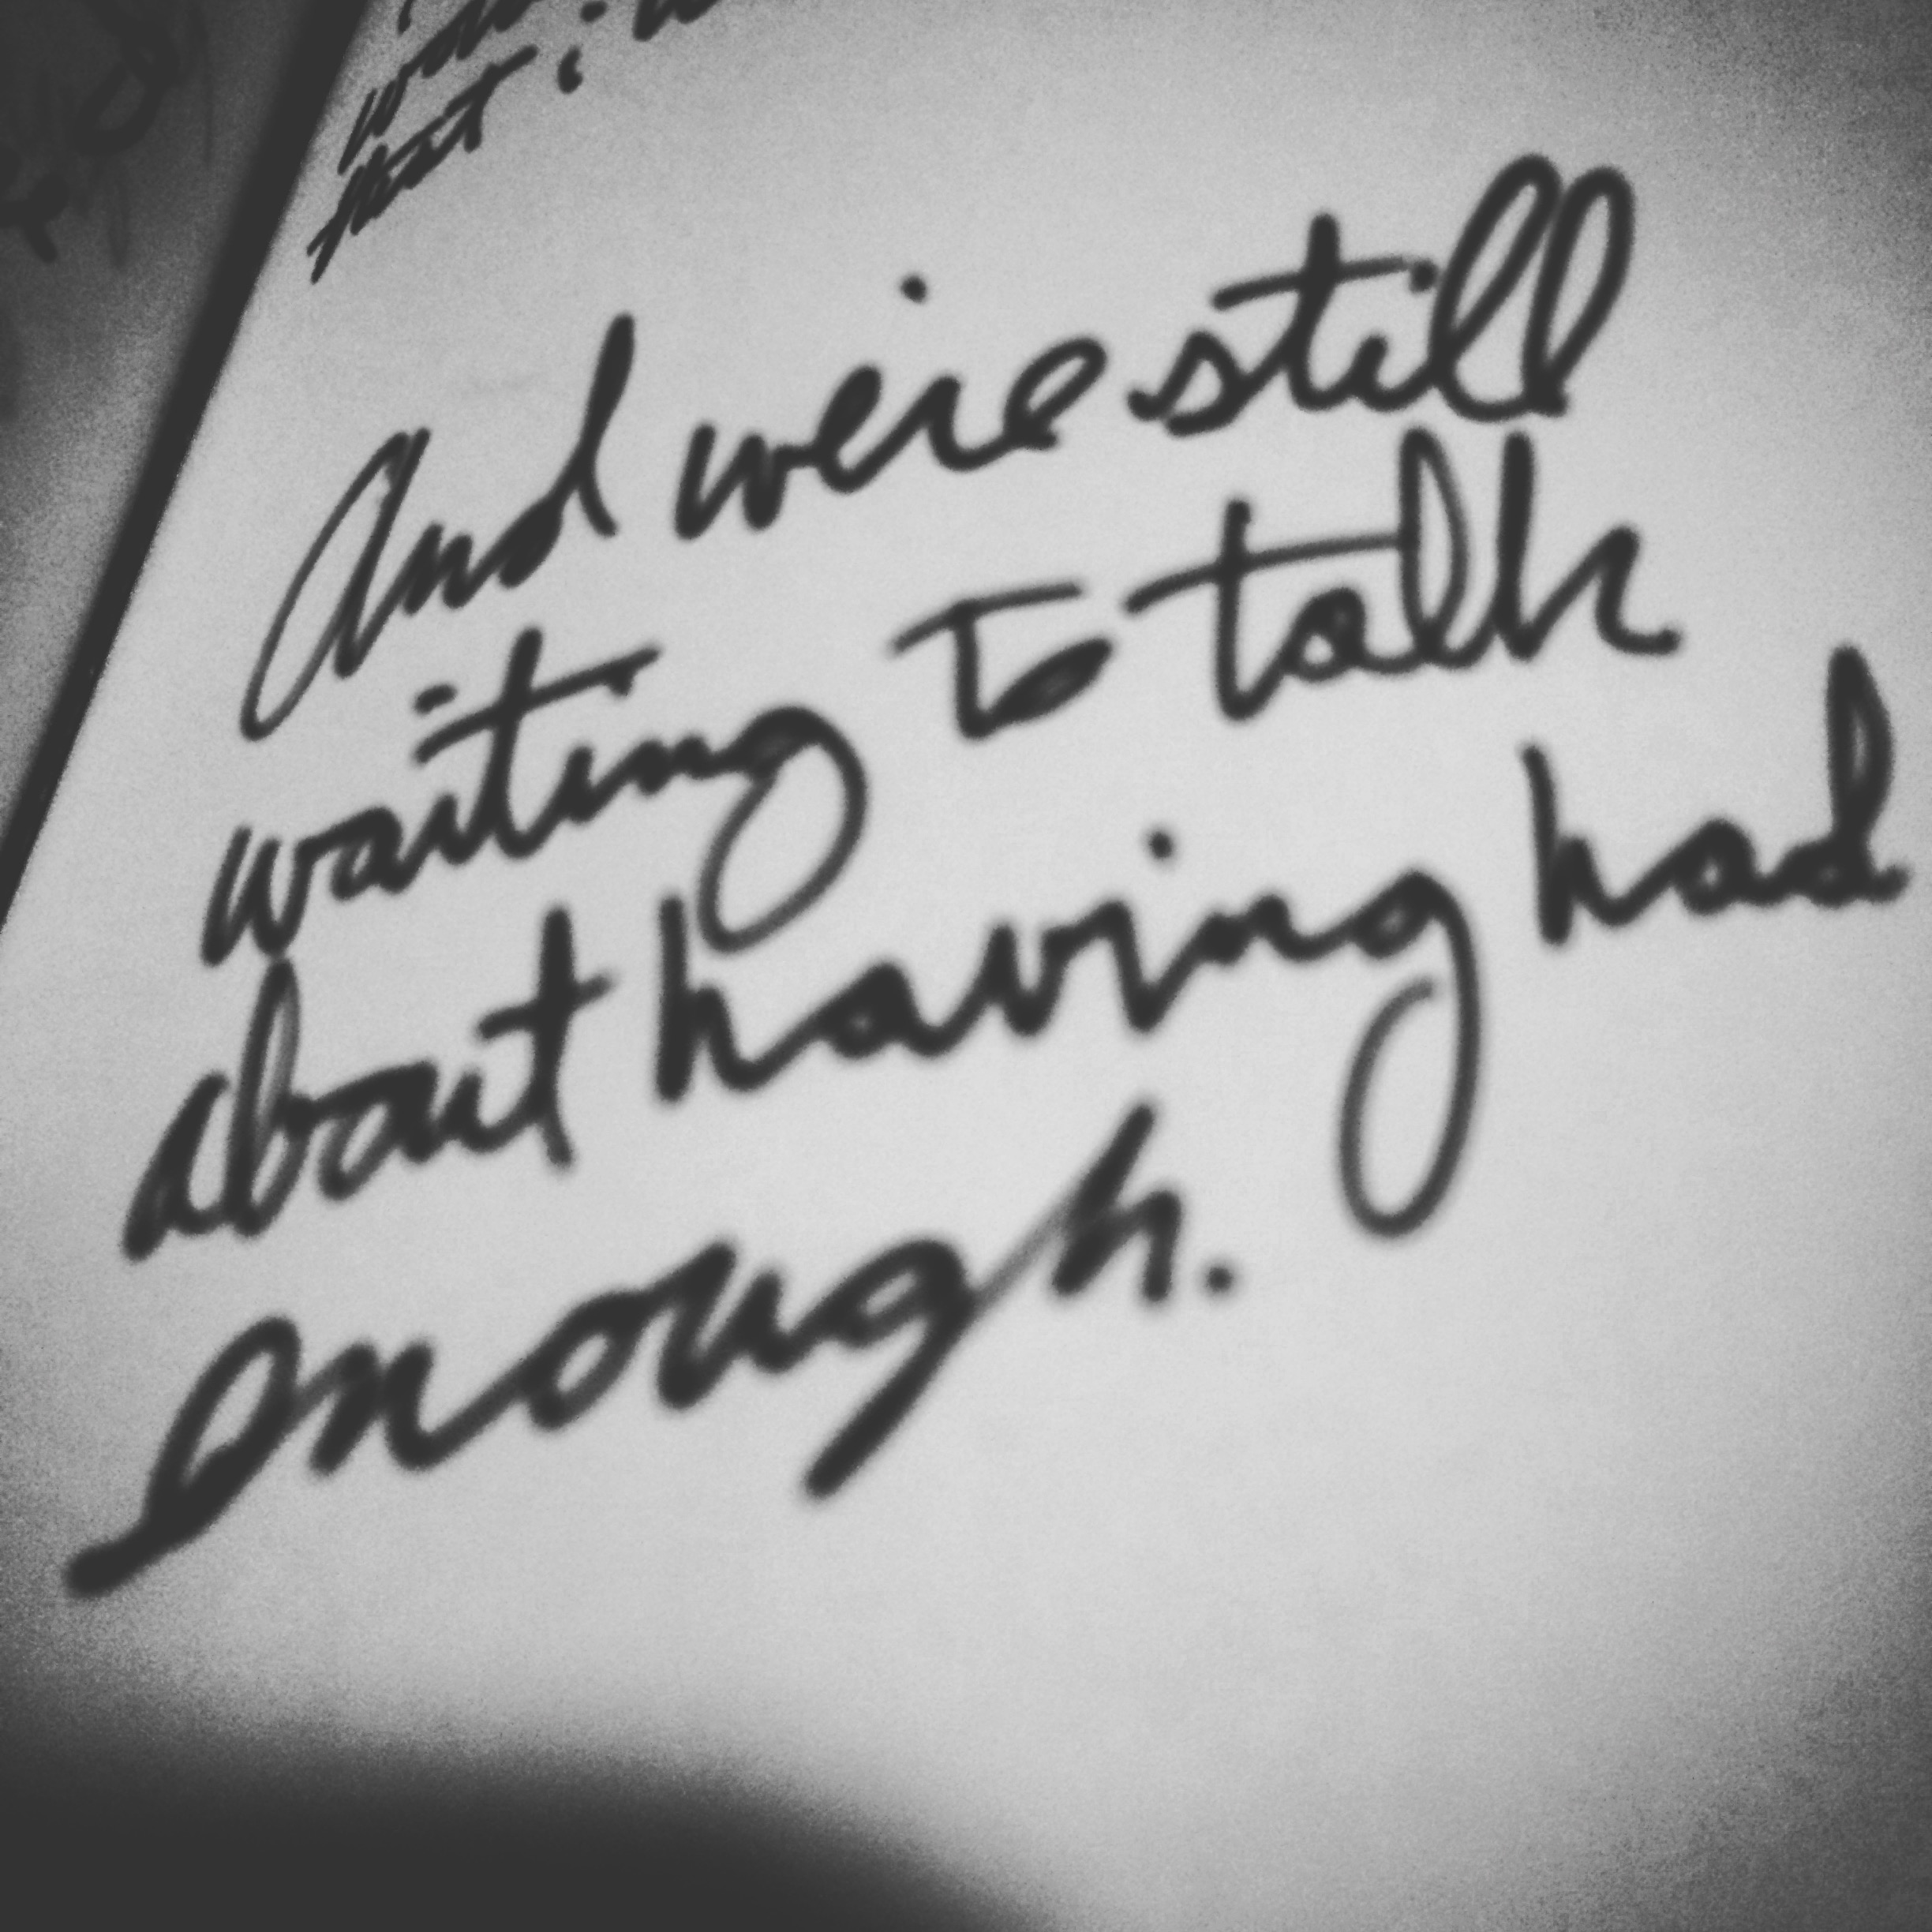 that
And we're still
waiting to talk
about having had
enough.